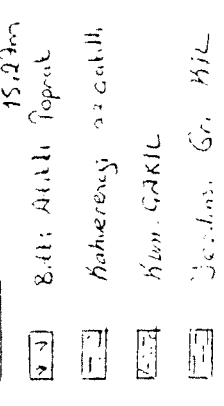 15.27m
Bitki Atıklı Toprak
Kahverengi az çakıllı
Kum. ÇAKIL
Gri KİL